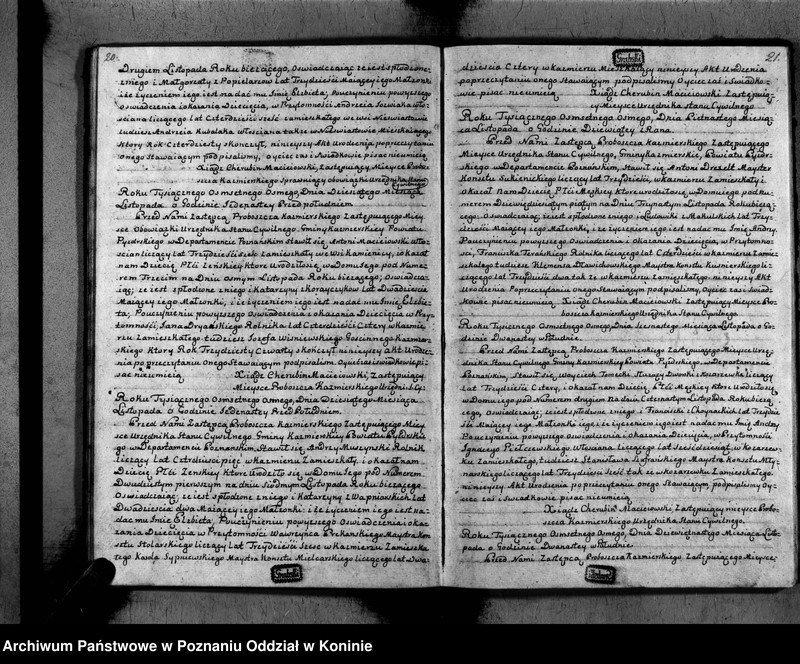 20.
Drugiem Listopada Roku bieżącego, Oświadczaiąc że iest spłodzone
z niego i Małgorzaty z Popielarzow lat Trzydzieści Maiącey iego Małżonki
i że życzeniem iego iest nadać mu Imie Elżbieta, Pouczynieniu powyższego
oświadczenia i okazania Dziecięcia, w Przytomności Andrzeia
liczącego lat Czterdzieści sześć zamieszkałego we wsi
tudzież Andrzeia Kubalaka włościana także w Mieszkaiącego,
ktory Rok Czterdziesty skończył, ninieyszy Akt Urodzenia po przeczytaniu
onego Stawaiącym podpisaliśmy, Oyciec zaś i Świadkowie pisać nieumieią
Xiądz Cherubin Maciowski, Zastępuiący Mieysce Probo-
szcza Kazimierskiego Sprawuiący obowiązki Urzędnika Stanu
Cywilnego
Roku Tysiącznego Osmsetnego Osmego, Dnia Dziesiątego Miesiąca
Listopada o Godzinie Jedenastey Przed południem.
Przed Nami Zastępcą Proboszcza Kazimierskiego Zastępuiącego Miey-
sce Obowiązki Urzędnika Stanu Cywilnego, Gminy Kazimierskiey Powiatu
Pyzdrskiego w Departamencie Poznańskim Stawił się Antoni Maciowski Wło-
ścian liczący lat Trzydzieści zamieszkały we wsi Kamienicy, i okazał
nam Dziecię Płci Żeńskiey ktore Urodziło się w Domu Jego pod Nume-
rem Trzecim na Dniu Osmym Listopada Roku bieżącego; Oświadcza-
iąc; że iest spłodzone z niego i Katarzyny z lat Dwadzieścia
Maiącey iego Małżonki, i że życzeniem iego iest nadać mu Imie Elżbie-
ta, Pouczynieniu powyższego Oświadczenia i okazania Dziecięcia w Przy-
tomności, Jana Rolnika lat Czterdzieści Cztery w Kazimie-
rzu Zamieszkałego tudzież Jozefa Wiśniewskiego Gościnnego Kazimier-
skiego ktory Rok Trzydziesty Czwarty skończył ninieyszy Akt Urodze-
nia po przeczytaniu Onego Stawaiącym podpisaliśm. Oyciec zaś i świadkowie pi-
sać nieumieią Xiądz Cherubin Maciowski, Zastępuiący
Mieysce Proboszcza Kazimierskiego
Roku Tysiącznego Osmsetnego Osmego, Dnia Dziesiątego Miesiąca
Listopada o Godzinie Jedenastey Przed Południem.
Przed Nami Zastępcą Proboszcza Kazimierskiego Zastępuiącego Miey-
sce Urzędnika Stanu Cywilnego Gminy Kazimierskiey Powiatu Pyzdrskie-
go w Departamencie Poznańskim Stawił się Andrzey Muszyński Rolnik
liczący lat Czterdzieści w Kazimierzu Zamieszkały, i okazał nam
Dziecię Płci Żeńskiey Ktore Urodziło się w Domu Jego pod Numerem
Dwudziestym pierwszym na dniu siodmym Listopada Roku bieżącego
Oświadczaiąc; że iest spłodzone z niego i Katarzyny z Wapniarskich lat
Dwadzieścia dwa Maiącey iego Małżonki: i że życzeniem iego iest na-
dać mu Imie Elżbieta, Pouczynieniu powyższego Oświadczenia i oka-
zania Dziecięcia w Przytomności Wawrzyńca Maystra Kon-
sztu Stolarskiego liczący lat Trzydzieści Sześć w Kazimierzu Zamieszka-
łego Karola Sypniewskiego Maystra Konsztu Mielcarskiego liczącego lat Dwa-
21.
dzieścia Cztery w Kazimierzu Mieszkaiący ninieyszy Akt Urodzenia
poprzeczytaniu onego Stawaiącym podpisaliśmy Oyciec zaś i Świadko-
wie pisać nieumieią Xiądz Cherubin Maciowski Zastępuią-
cy Mieysce Urzędnika Stanu Cywilnego
Roku Tysiącznego Osmsetnego Osmego, Dnia Piętnastego Miesią-
ca Listopada o Godzinie Dziewiątey z Rana.
Przed Nami Zastępcą Proboszcza Kazimierskiego Zastępuiącego
Mieysce Urzędnika Stanu Cywilnego, Gminy Kazimierskiey, Powiatu Pyzdr-
skiego w Departamencie Poznańskim, Stawił się Antoni Drexlel Mayster
Konsztu Sukienniczego liczący lat Trzydzieści, w Kazimierzu Zamieszkały i
okazał nam Dziecię Płci Męskiey ktore urodziło się w Domu iego pod Nu-
merem Dziewięćdziesiątym piątym na Dniu Trzynastym Listopada Roku bieżą-
cego. Oświadczaiąc; że iest spłodzone z niego i Ludwiki z Makulskich lat Trzy-
dzieści Maiącey iego Małżonki, i że życzeniem iego iest nadać mu Imie Andrzey.
Pouczynieniu powyższego Oświadczenia i Okazania Dziecięcia, w Przytomno-
ści, Franciszka Terańskiego Rolnika liczącego lat Czterdzieści w Kazimierzu Zamie-
szkałego tudzież Klemensa Stawichowskiego Maystra Konsztu Kusnierskiego li-
czącego lat Trzydzieści dwa także w Kazimierzu Zamieszkałego ninieyszy Akt
Urodzenia Po przeczytaniu Onego Stawaiącym podpisaliśmy, Oyciec zaś i Świad-
kowie pisać nieumieią. Xiądz Cherubin Maciowski Zastępuiący Mieysce Pro-
boszcza Kazimierskiego Urzędnika Stanu Cywilnego.
Roku Tysiącznego Osmsetnego Osmego, Dnia Szesnastego, Miesiąca Listopada o Go-
dzinie Dwanastey w Południe.
Przed Nami Zastępcą, Proboszcza Kazimierskiego Zastępuiącego Mieysce Urzęd-
nika Stanu Cywilnego Gminy Kazimierskiey Powiatu Pyzdrskiego, w Departamencie
Poznańskim, Stawił się Woyciech Tomecki Dworski z liczący
lat Trzydzieści Cztery, i okazał nam Dziecię Płci Męskiey ktore Urodziło się
w Domu iego pod Numerem drugiem Na dniu Czternastym Listopada Roku bieżą-
cego, Oświadczaiąc; iż iest spłodzone z niego i Franciszki z lat Trzydzie-
ści Maiącey iego Małżonki iego; i że życzeniem iego iest nadać mu Imie Andrzey
Pouczynieniu powyższego oświadczenia i Okazania Dziecięcia, w Przytomności
Ignacego Włościana liczącego lat Sześćdziesiąt, w Kozarzew-
ku Zamieszkałego, tudzież Stanisława Szafrańskiego Maystra Konsztu Mły-
narskiego liczącego lat Trzydzieści sześć także w Kozarzewku Zamieszkałego.
ninieyszy Akt Urodzenia po przeczytaniu onego Stawaiącym, podpisaliśmy Oy-
ciec zaś i Świadkowie pisać nieumieią
Xiądz Cherubin Maciowski, Zastępuiący mieysce Probo-
szcza Kazimierskiego Urzędnika Stanu Cywilnego.
Roku Tysiącznego Osmsetnego Osmego, Dnia Dziewiętnastego Miesiąca Listo-
pada o Godzinie Dwanastey w Południe.
Przed Nami Zastępcą, Proboszcza Kazimierskiego Zastępuiącego Mieysce
Archiwum Państwowe w Poznaniu Oddział w Koninie